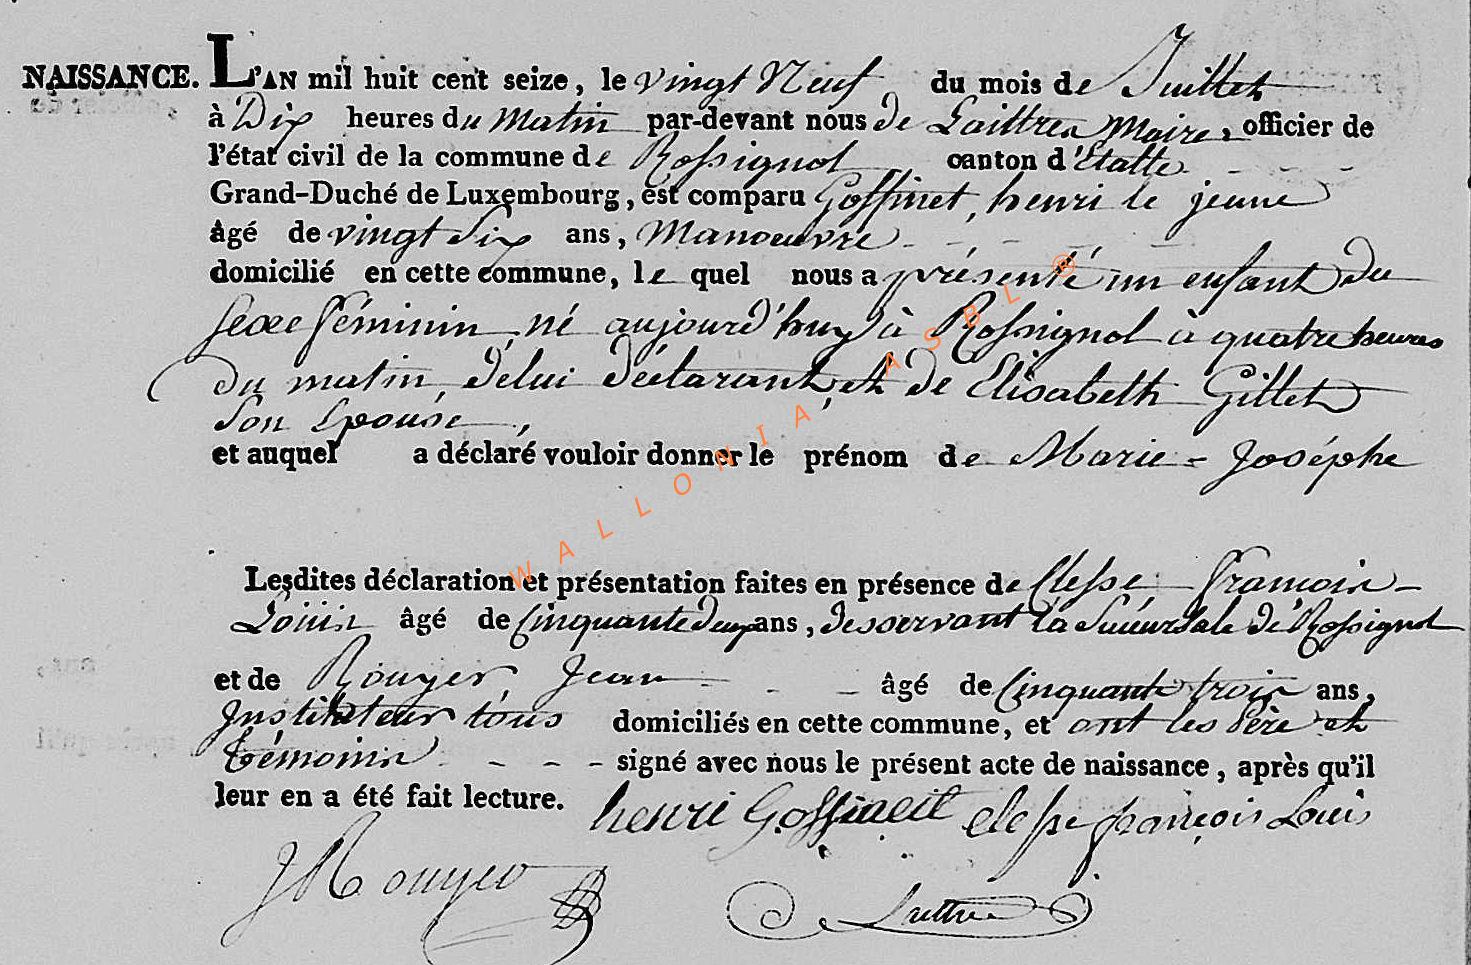 NAISSANCE. L'AN mil huit cent seize, le vingt Neuf du mois de Juillet
à Dix heures du Matin par-devant nous de Laittres Maire, officier de
l'état civil de la commune de Rossignol canton d'Etalle
Grand-Duché de Luxembourg, est comparu Goffinet, henri le jeune
âgé de vingt Six ans, Manoeuvre
domicilié en cette commune, le quel nous a présenté un enfant du
sexe féminin, né aujourd'huy à Rossignol à quatre heures
du matin, de lui déclarant, et de Elisabeth Gillet
Son Epouse,
et auquel a déclaré vouloir donner le prénom de Marie-Joséphe
Lesdites déclaration et présentation faites en présence de Clesse françois
Louis âgé de Cinquante deux ans, desservant la Succursale de Rossignol
et de Rouyer, Jean âgé de Cinquante trois ans,
Instituteur tous domiciliés en cette commune, et ont les Père et
témoins signé avec nous le présent acte de naissance, après qu'il
leur en a été fait lecture. henri Goffineit clesse françois Louis
JRouyer Laittres
WALLONIA ASBL ®